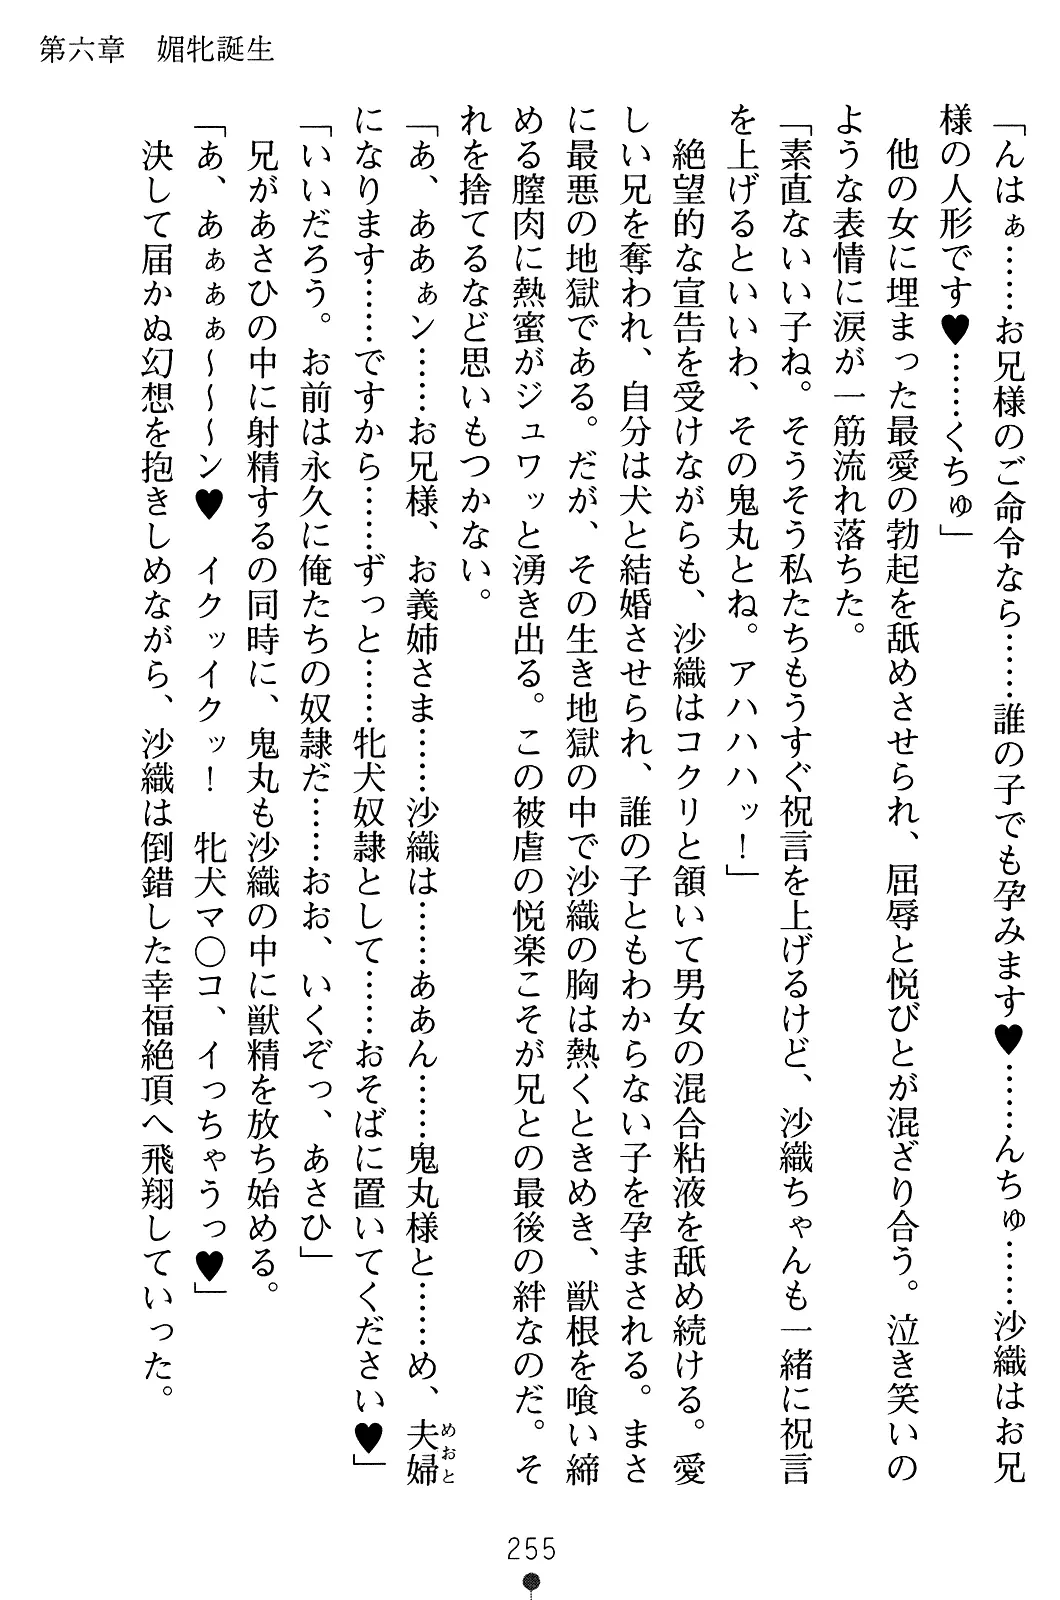 第六章　媚牝誕生
「んはぁ……お兄様のご命令なら……誰の子でも孕みます♥……んちゅ……沙織はお兄
様の人形です♥……くちゅ」
　他の女に埋まった最愛の勃起を舐めさせられ、屈辱と悦びとが混ざり合う。泣き笑いの
ような表情に涙が一筋流れ落ちた。
「素直ないい子ね。そうそう私たちもうすぐ祝言を上げるけど、沙織ちゃんも一緒に祝言
を上げるといいわ、その鬼丸とね。アハハハッ！」
　絶望的な宣告を受けながらも、沙織はコクリと頷いて男女の混合粘液を舐め続ける。愛
しい兄を奪われ、自分は犬と結婚させられ、誰の子ともわからない子を孕まされる。まさ
に最悪の地獄である。だが、その生き地獄の中で沙織の胸は熱くときめき、獣根を喰い締
める膣肉に熱蜜がジュワッと湧き出る。この被虐の悦楽こそが兄との最後の絆なのだ。そ
れを捨てるなど思いもつかない。
「あ、ああぁン……お兄様、お義姉さま……沙織は……ああん……鬼丸様と……め、夫婦
めおと
になります……ですから……ずっと……牝犬奴隷として……おそばに置いてください♥」
「いいだろう。お前は永久に俺たちの奴隷だ……おお、いくぞっ、あさひ」
　兄があさひの中に射精するの同時に、鬼丸も沙織の中に獣精を放ち始める。
「あ、あぁぁぁ〜〜〜ン♥　イクッイクッ！　牝犬マ〇コ、イっちゃうっ♥」
　決して届かぬ幻想を抱きしめながら、沙織は倒錯した幸福絶頂へ飛翔していった。
255